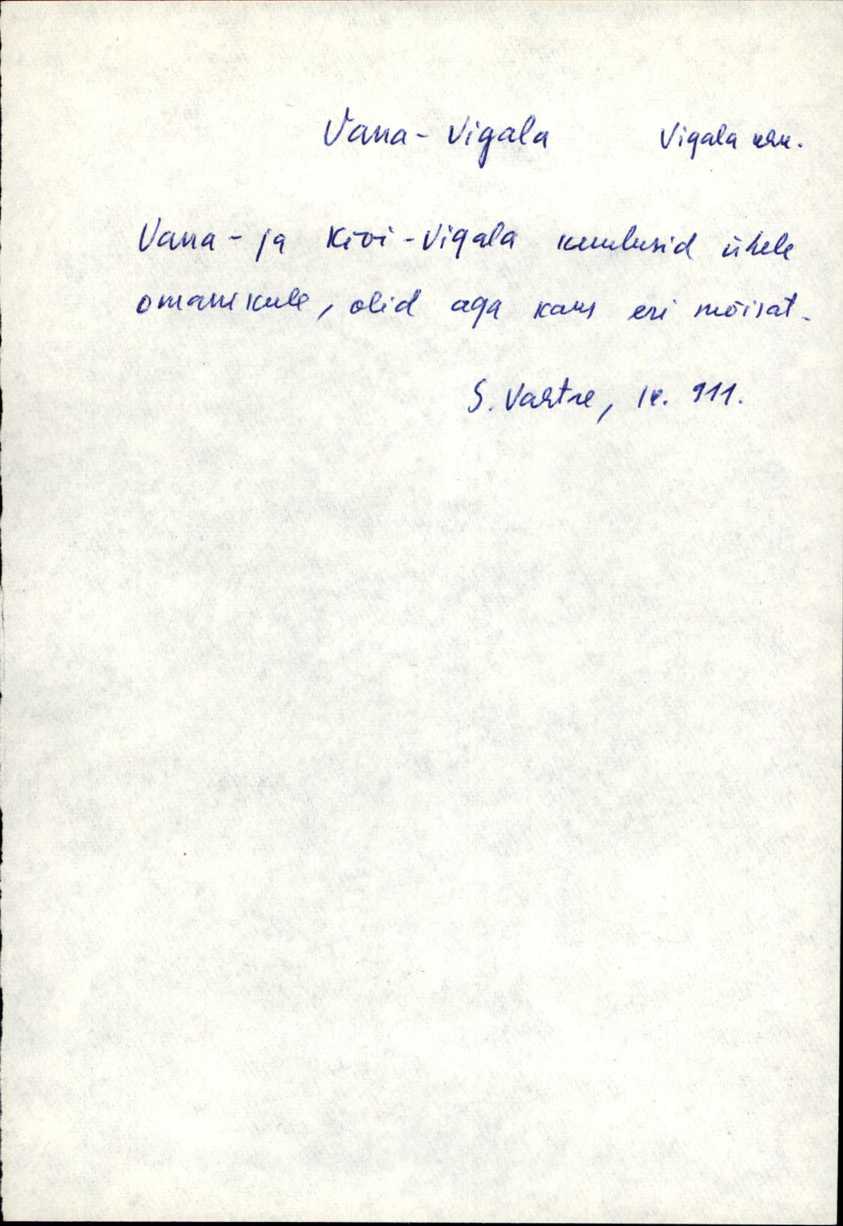 Vana-Vigala Vigala khk.
Vana- ja Kivi-Vigala kuulusid ühele
omanikule, olid aga kaks eri mõisat.
S. Vahtre, lk. 911.